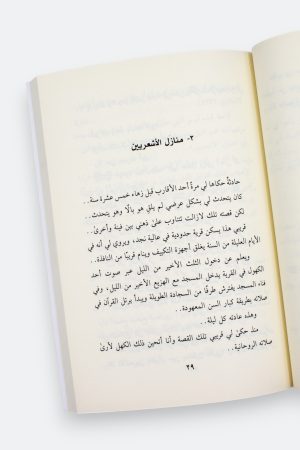 ٣- منازل الأشعريين
حادثةٌ حكاها لي مرةً أحد الأقارب قبل زهاء خمس عشرة سنة..
كان يتحدث لي بشكل عرضي لم يلقِ هو بالًا وهو يتحدث..
لكن قصته تلك لازالت تتناوب على ذهني بين فينة وأخرى..
قريبي هذا يسكن قرية حدودية في عالية نجد، ويروي لي أنه في
الأيام العليلة من السنة يغلق أجهزة التكييف وينام قريبًا من النافذة..
ويعلم عن دخول الثلث الأخير من الليل عبر صوت أحد
الكهول في القرية يدخل المسجد مع الهزيع الأخير من الليل، وفي
فناء المسجد يفترش طرفًا من السجادة الطويلة ويبدأ يرتل القرآن في
صلاته بطريقة كبار السن المعهودة..
وهذه عادته كل ليلة..
منذ حكى لي قريبي تلك القصة وأنا أتحين ذلك الكهل لأرىٰ
صلاته الروحانية..
٢٩